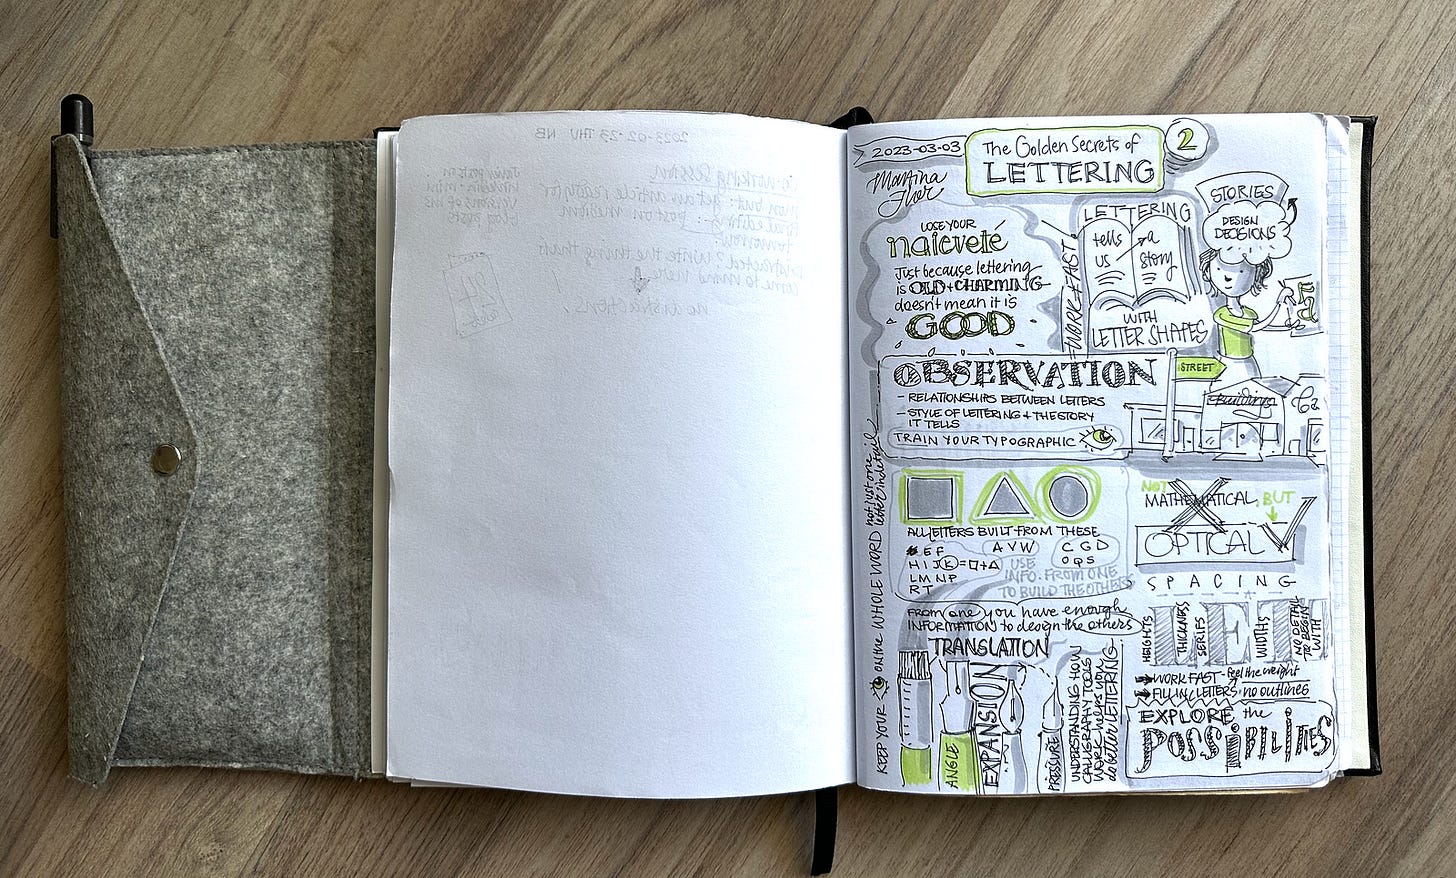 2023-02-23 THU NB
2023-03-03
The Golden Secrets of
LETTERING
2
Martina
Flor
LOSE YOUR
naieveté
Just because lettering
is OLD + CHARMING
doesn't mean it is
GOOD
WORK FAST
LETTERING
tells a
us story
WITH
LETTER SHAPES
STORIES
DESIGN
DECISIONS
OBSERVATION
- RELATIONSHIPS BETWEEN LETTERS
- STYLE OF LETTERING + THE STORY
IT TELLS
TRAIN YOUR TYPOGRAPHIC
STREET
Buildings
KEEP YOUR ON the WHOLE WORD
not just one
letter in detail
ALL LETTERS BUILT FROM THESE
E F
H I J K = □ + △
L M N P
R T
A V W
C G D
O Q S
USE
INFO. FROM ONE
TO BUILD THE OTHERS
NOT
MATHEMATICAL, BUT
OPTICAL
SPACING
From one you have enough
INFORMATION to design the others
TRANSLATION
ANGLE
EXPANSION
PRESSURE
UNDERSTANDING HOW
CALLIGRAPHY TOOLS
WORK helps you
do better LETTERING
HEIGHTS
THICKNESS
SERIFS
WIDTHS
NO DETAIL
TO BEGIN
WITH
WORK FAST - feel the weight
FILL IN LETTERS - no outlines
EXPLORE the
POSSiBiLiTiES